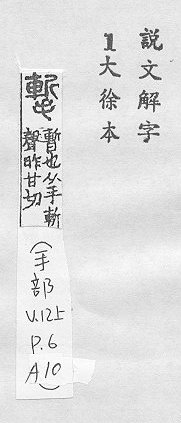 説文解字
1大徐本
暫也从手斬
聲昨甘切
(手部
V.12上
P.6
A10)